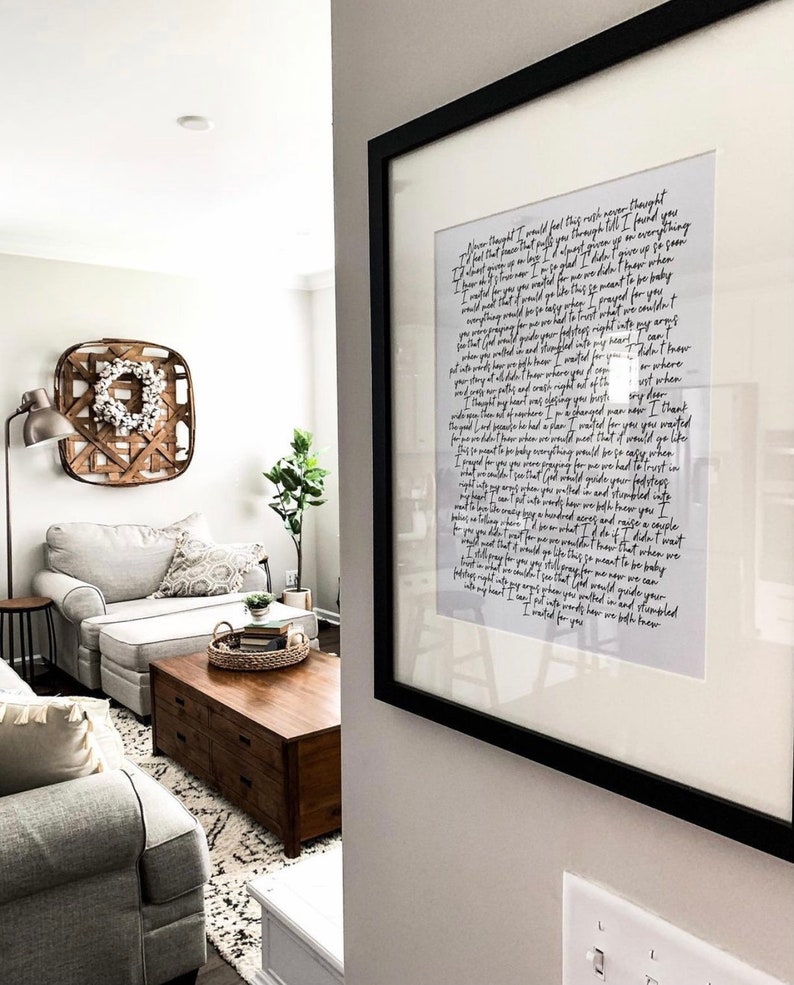 Never thought I would feel this rush never thought
I'd feel that peace that pulls you through till I found you
I'd almost given up on love I'd almost given up on everything
I knew oh it's true now I'm so glad I didn't give up so soon
I waited for you you waited for me we didn't know when
would meet that it would go like this so meant to be baby
everything would be so easy when I prayed for you
you were praying for me we had to trust what we couldn't
see that God would guide your footsteps right into my arms
when you walked in and stumbled into my heart I can't
put into words how we both knew I waited for you I didn't know
your story at all didn't know where you'd come or where
we'd cross our paths and crash right out of the just when
I thought my heart was closing you every door
wide open then out of nowhere I'm a changed man now I thank
the good Lord because he had a plan I waited for you you waited
for me we didn't know when we would meet that it would go like
this so meant to be baby everything would be so easy when
I prayed for you you were praying for me we had to trust in
what we couldn't see that God would guide your footsteps
right into my arms when you walked in and stumbled into
my heart I can't put into words how we both knew you I
want to love like crazy buy a hundred acres and raise a couple
babies no telling where I'd be or what I'd do if I didn't wait
for you you didn't wait for me we wouldn't know that when we
would meet that it would go like this so meant to be baby
I still pray for you you still pray for me now we can
trust in what we couldn't see that God would guide your
footsteps right into my arms when you walked in and stumbled
into my heart I can't put into words how we both knew
I waited for you